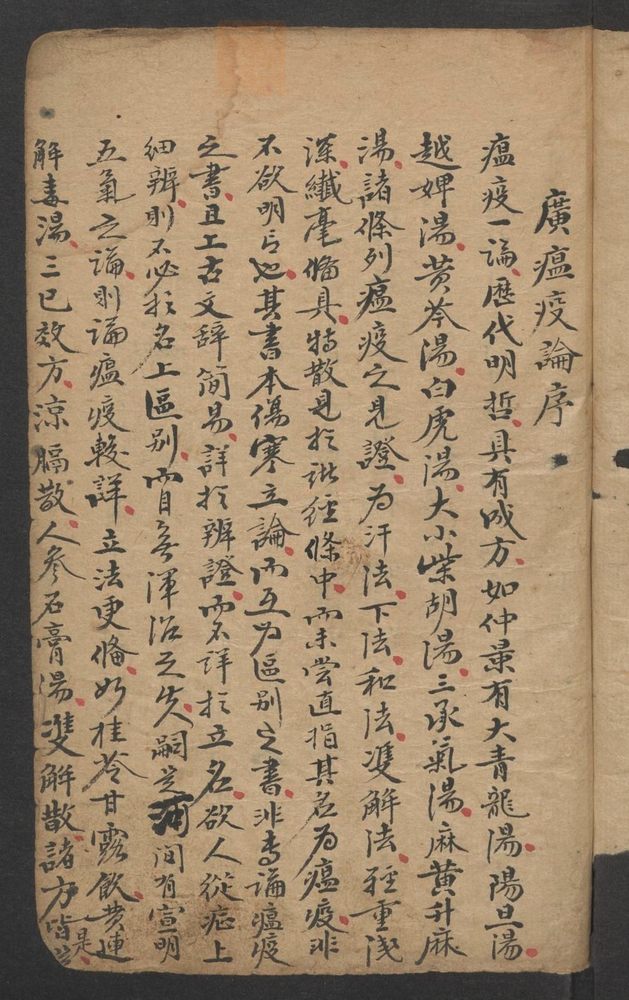 廣瘟疫論序
瘟疫一論歷代明哲具有成方如仲景有大青龍湯陽旦湯
越婢湯黄芩湯白虎湯大小柴胡湯三承氣湯麻黄升麻
湯諸條列瘟疫之見證為汗法下法和法雙解法輕重淺
深纖毫俻具特散見扵諸經條中而未嘗直指其名為瘟疫非
不欲明言也其書本傷寒立論而互为區别之書非専論瘟疫
之書且上古文辞简易詳扵辨證而不詳扵立名欲人從症上
细辨則不必扵名上區别而自無渾淆之失嗣是河间有宣明
五氣之論則論瘟疫較詳立法更俻如桂苓甘露飲黄連
解毒湯三已效方凉膈散人参石膏湯雙解散諸方皆是